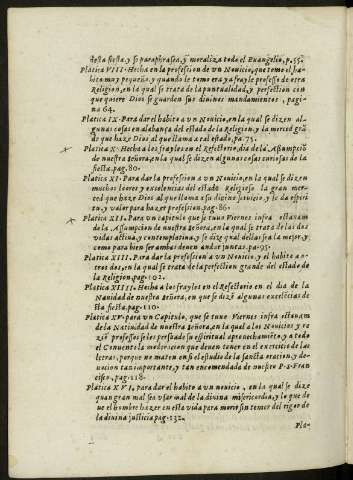 desta fiesta, y se paraphrasea, y moraliza todo el Euangelio, p.55.
Platica VIII. Hecha en la profession de vn Nouicio, que tomo el ha-
bito muy pequeño, y quando le tomo era ya frayle professo de otra
Religion, en la qual se trata de la puntualidad, y perfection con
que quiere Dios se guarden sus diuinos mandamientos, pagi-
na 64.
Platica IX. Para dar el habito a vn Nouicio, en la qual se dizen al-
gunas cosas en alabança del estado de la Religion, y la merced grã
de que haze Dios al que llama a tal estado, pa.73.
Platica X. Hecha a los frayles en el Refectorio, dia de la Assumpciõ
de nuestra señora, en la qual se dizen algunas cosas curiosas de la
fiesta. pag.80.
Platica XI. Para dar el habito a vn Nouicio, en la qual se dizen
muchos loores y excelencias del estado Religioso, la gran mer-
ced que haze Dios al que llama a su diuino seruicio, y le da espiri
tu, y valor para hazer profession. pag.86.
Platica XII. Para vn capitulo que se tuuo Viernes infra octauam
de la Assumpcion de nuestra Señora, en la qual se trata de las dos
vidas actiua, y contemplatiua, y se dize qual dellas sea la mejor, y
como para bien ser ambas deuen andar juntas. pa.95.
Platica XIII. Para dar la profession a vn Nouicio, y el habito a o-
tros dos, en la qual se trata de la perfection grande del estado de
la Religion. pag.102.
Platica XIIII. Hecha a los frayles en el Refectorio en el dia de la
Natiuidad de nuestra señora, en que se dizẽ algunas excelẽcias de
sta fiesta. pag.110.
Platica XV. para vn Capitulo, que se tuuo Viernes infra octauam
de la Natiuidad de nuestra Señora, en la qual a los Nouicios y re
ziẽ professos se les persuade su espiritual aprouechamiẽto, y a todo
el Conuento la moderacion que deuen tener en el exercicio de las
letras, porque no maten en si el estudio de la sancta oracion, y de-
uocion tan importante, y tan encomendada de nuestro P.S. Fran
cisco, pag.118.
Platica XVI. Para dar el habito a vn nouicio, en la qual se dize
quan gran mal sea vsar mal de la diuina misericordia, y lo que de
ue el hombre hazer en esta vida para morir sin temor del rigor de
la diuina justicia pag.132.
Pla-